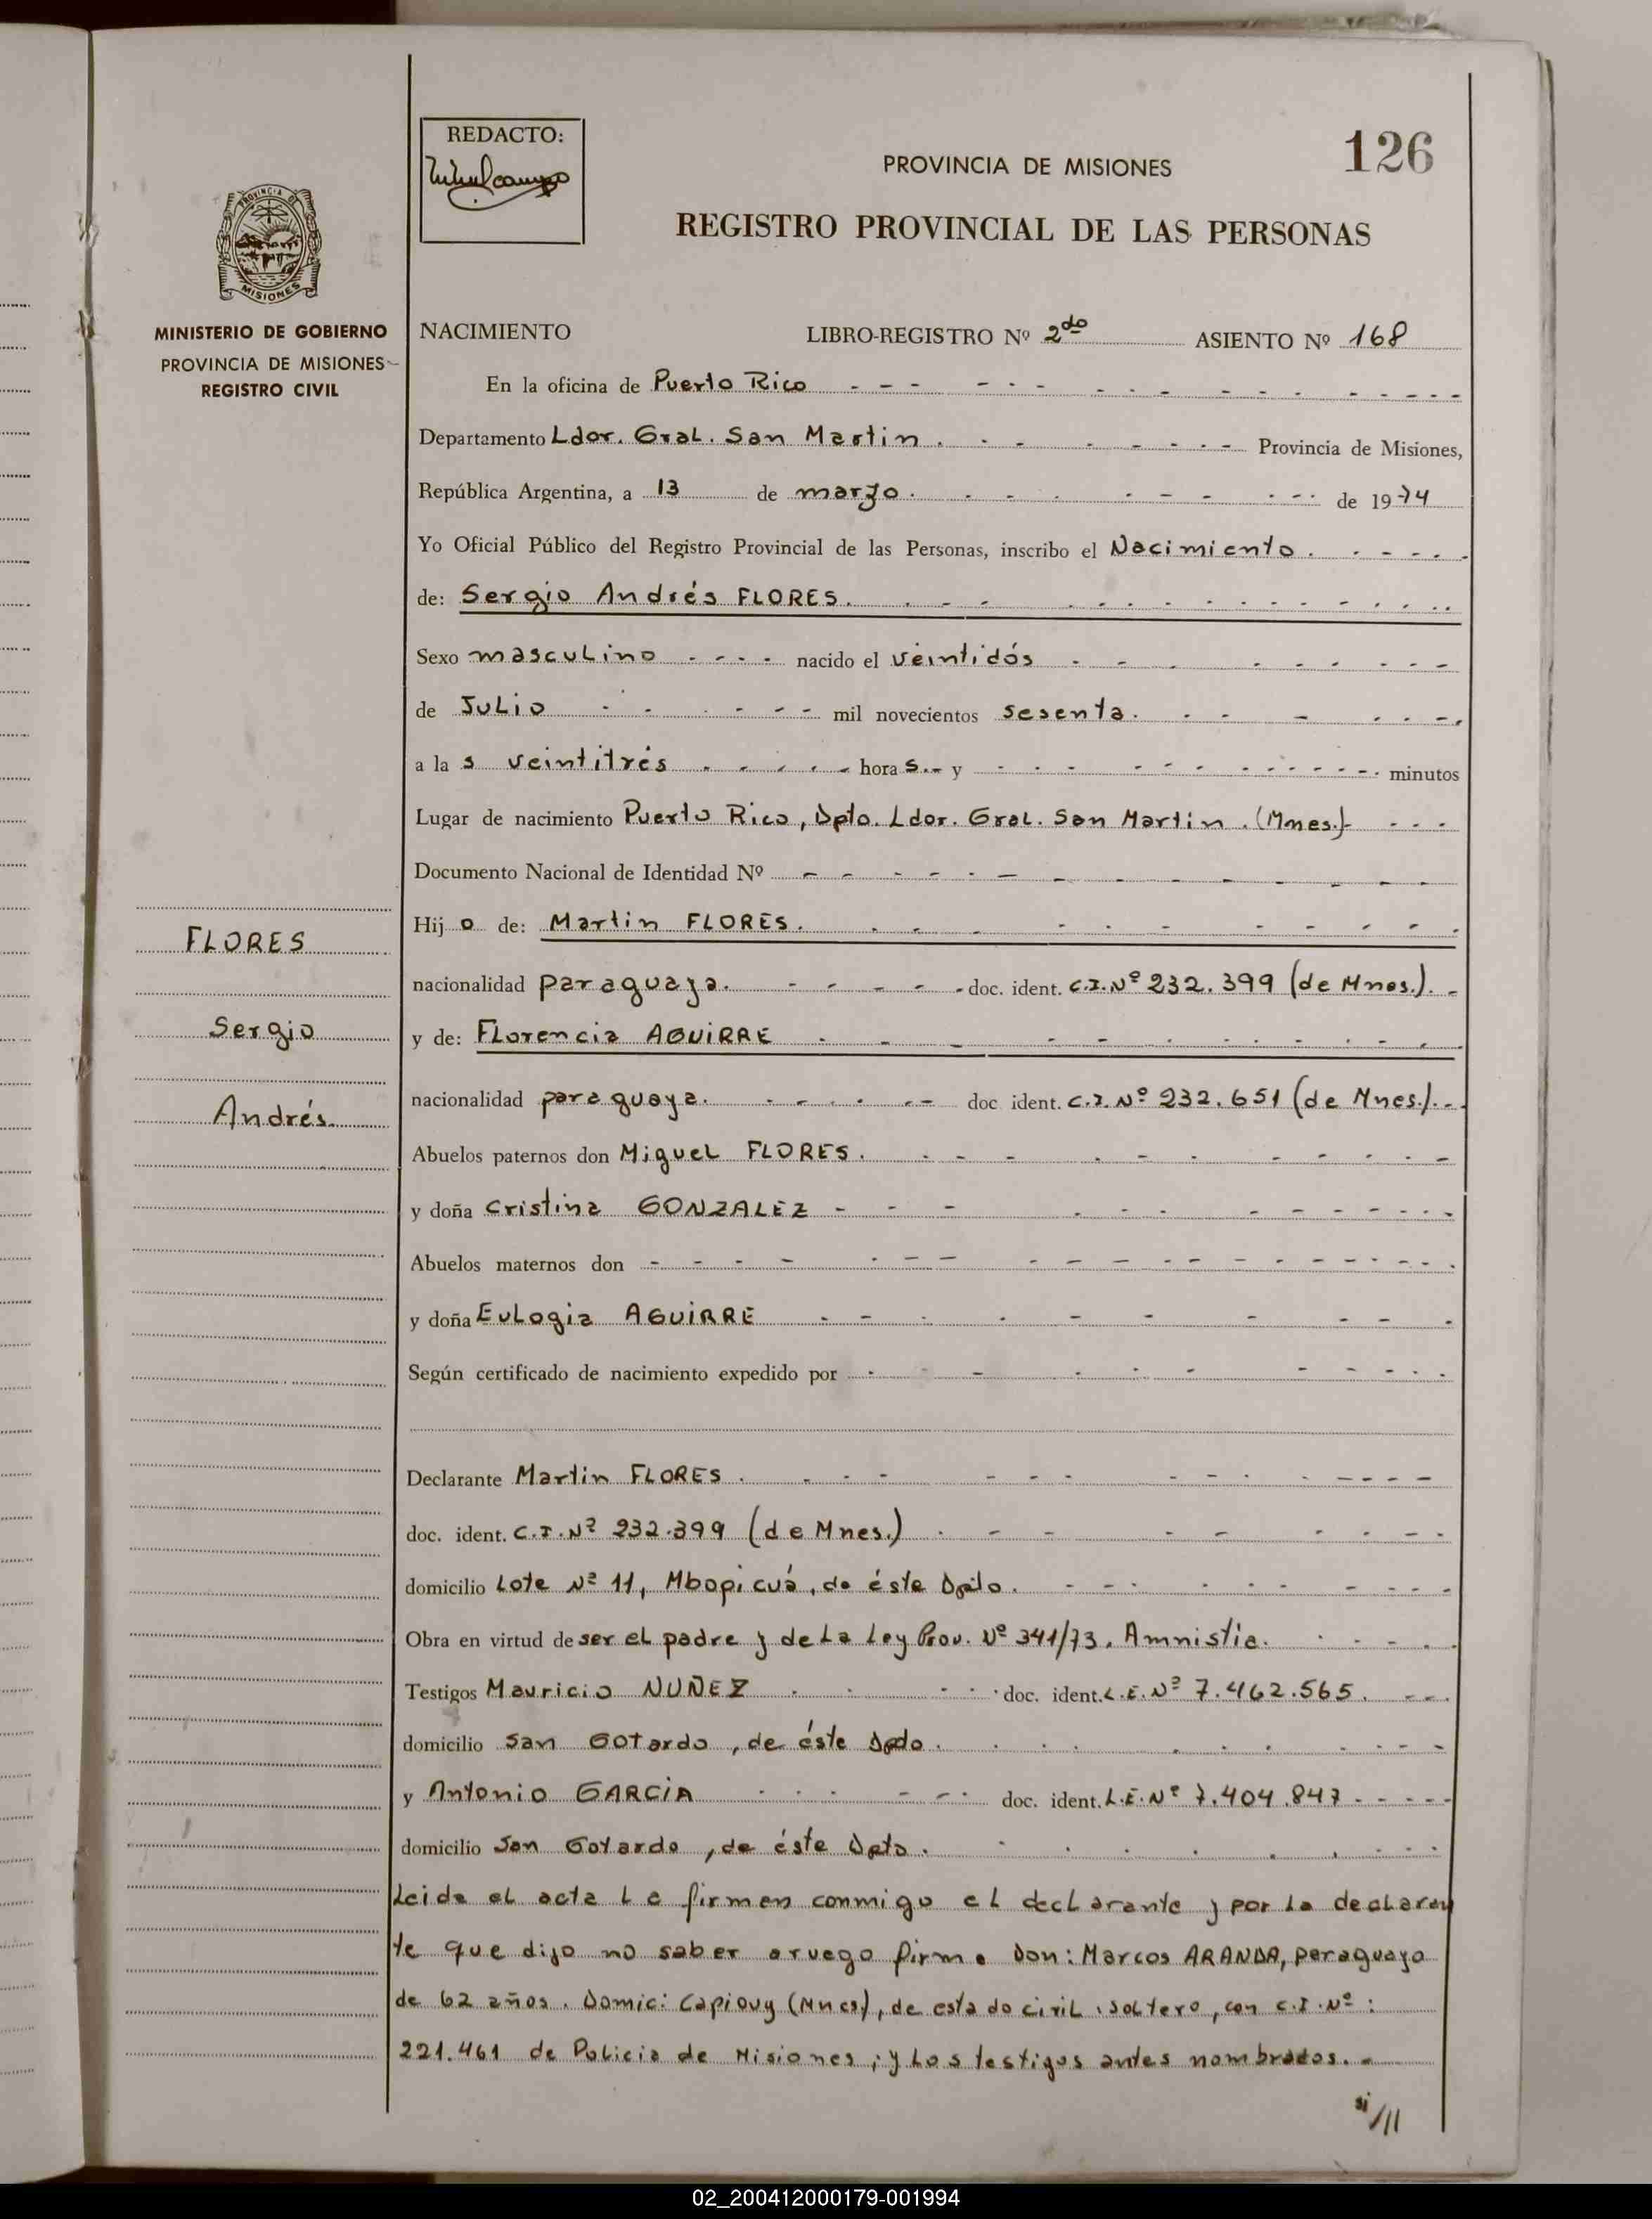 REDACTO:
PROVINCIA DE MISIONES
126
REGISTRO PROVINCIAL DE LAS PERSONAS
PROVINCIA DE
MISIONES
MINISTERIO DE GOBIERNO
PROVINCIA DE MISIONES
REGISTRO CIVIL
NACIMIENTO LIBRO-REGISTRO Nº 2do ASIENTO Nº 168
En la oficina de Puerto Rico
Departamento Ldor. Gral. San Martin. Provincia de Misiones,
República Argentina, a 13 de marzo. de 1974
Yo Oficial Público del Registro Provincial de las Personas, inscribo el Nacimiento.
de: Sergio Andrés FLORES.
Sexo masculino nacido el veintidós
de Julio mil novecientos sesenta.
a la s veintitrés hora s. y minutos
Lugar de nacimiento Puerto Rico, Dpto. Ldor. Gral. San Martin. (Mnes.)
Documento Nacional de Identidad Nº
Hij o de: Martin FLORES.
nacionalidad paraguaya. doc. ident. C.I. Nº 232.399 (de Mnes.).
y de: Florencia AGUIRRE
nacionalidad paraguaya. doc ident. C.I. Nº 232.651 (de Mnes.).
Abuelos paternos don Miguel FLORES.
y doña Cristina GONZALEZ
Abuelos maternos don
y doña Eulogia AGUIRRE
Según certificado de nacimiento expedido por
Declarante Martin FLORES.
doc. ident. C.I. Nº 232.399 (de Mnes.)
domicilio Lote Nº 11, Mbopicuá, de éste Dpto.
Obra en virtud de ser el padre y de La Ley Prov. Nº 341/73. Amnistia.
Testigos Mauricio NUÑEZ doc. ident. L.E. Nº 7.462.565.
domicilio San Gotardo, de éste Dpdo.
y Antonio GARCIA doc. ident. L.E. Nº 7.404.847
domicilio San Gotardo, de éste Dpto.
Leida el acta La firman conmigo el declarante y por La declaran
te que dijo no saber a ruego firma Don: Marcos ARANDA, paraguayo
de 62 años. Domic: Capiovy (Mnes), de estado civil soltero, con C.I. Nº:
221.461 de Policia de Misiones; y Los testigos antes nombrados.
FLORES
Sergio
Andrés.
02_200412000179-001994